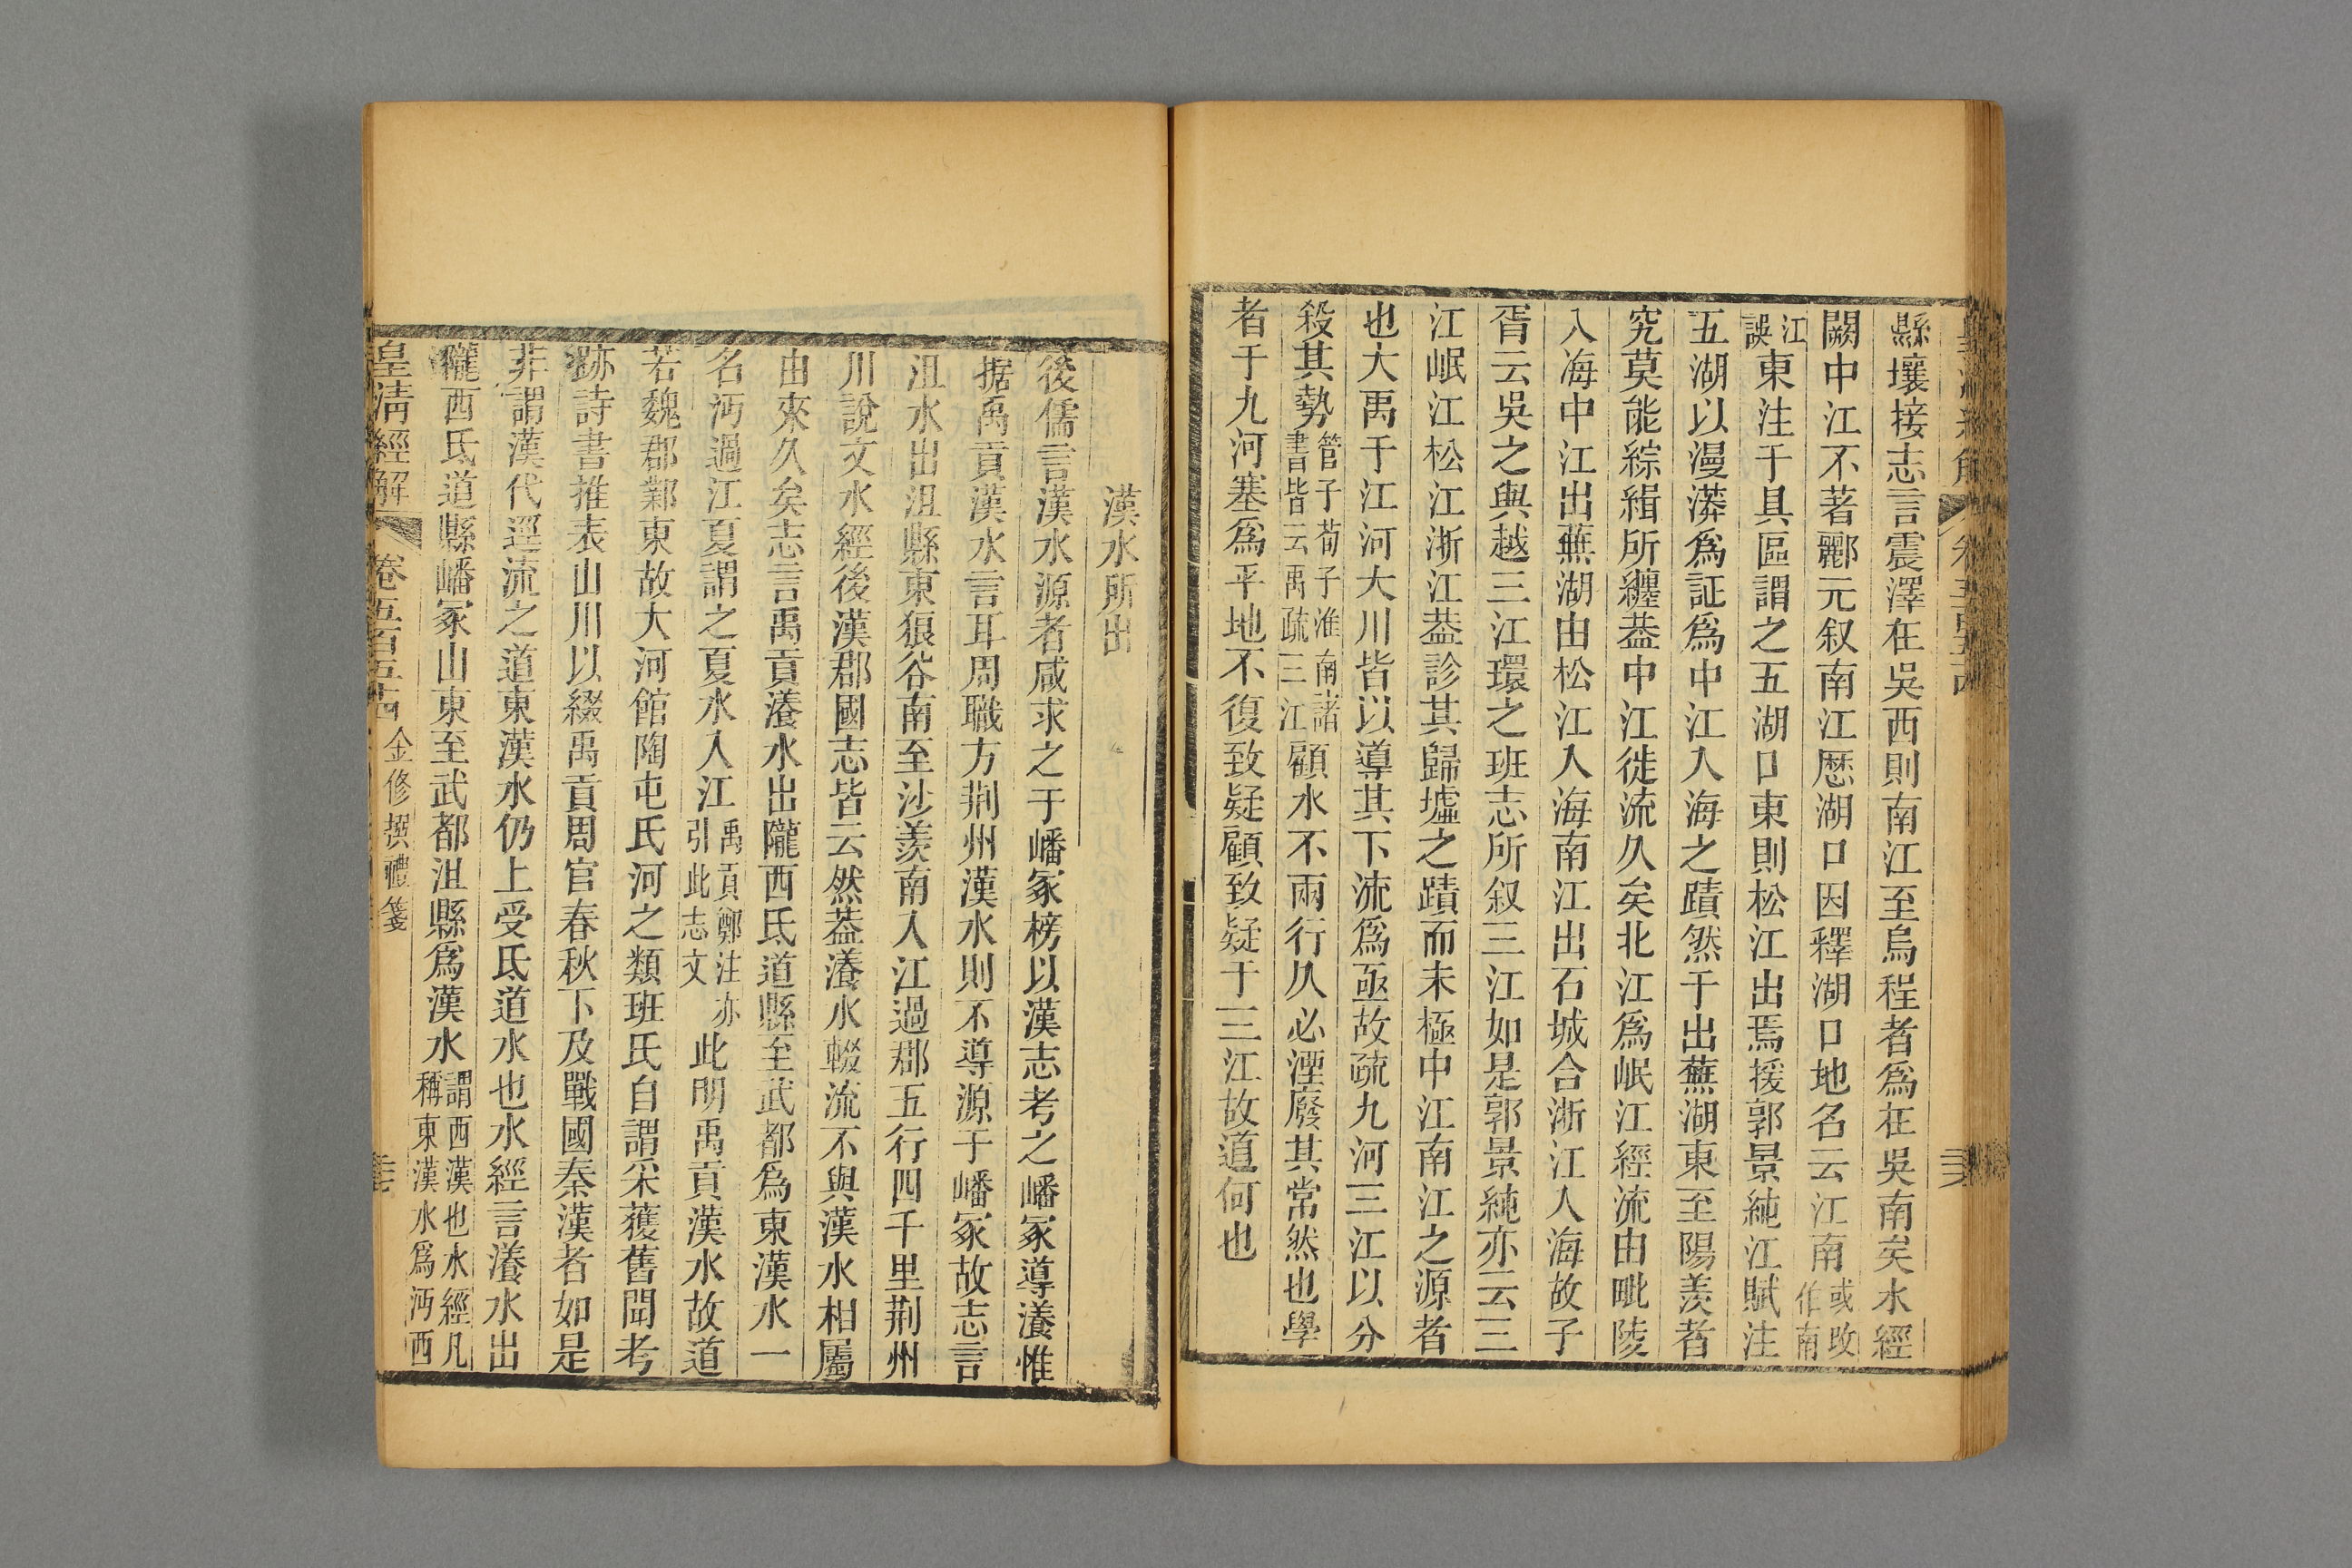 縣壤接志言震澤在吳西則南江至烏程者爲在吳南矣水經
闕中江不著酈元叙南江歷湖口因釋湖口地名云江南或改伯南
江誤東注于具區謂之五湖口東則松江出焉援郭景純江賦注
五湖以漫漭爲証爲中江入海之蹟然于出蕪湖東至陽羨者
究莫能綜緝所纏葢中江徙流久矣北江爲岷江經流由毗陵
入海中江出蕪湖由松江入海南江出石城合浙江入海故子
胥云吳之與越三江環之班志所叙三江如是郭景純亦云三
江岷江松江浙江葢診其歸墟之蹟而未極中江南江之源者
也大禹于江河大川皆以導其下流爲亟故疏九河三江以分
殺其勢管子荀子淮南諸書皆云禹疏三江顧水不兩行久必湮廢其常然也學
者于九河塞爲平地不復致疑顧致疑于三江故道何也
漢水所出
後儒言漢水源者咸求之于嶓冢榜以漢志考之嶓冢導瀁惟
据禹貢漢水言耳周職方荆州漢水則不導源于嶓冢故志言
沮水出沮縣東狼谷南至沙羨南入江過郡五行四千里荆州
川說文水經後漢郡國志皆云然葢瀁水輟流不與漢水相屬
由來久矣志言禹貢瀁水出隴西氐道縣至武都爲東漢水一
名沔過江夏謂之夏水入江禹貢鄭注亦引此志文此明禹貢漢水故道
若魏郡鄴東故大河館陶屯氏河之類班氏自謂采獲舊聞考
跡詩書推表山川以綴禹貢周官春秋下及戰國秦漢者如是
非謂漢代逕流之道東漢水仍上受氐道水也水經言瀁水出
隴西氐道縣嶓冢山東至武都沮縣爲漢水謂西漢也水經凡稱東漢水爲沔西
皇清經解 卷五百五十四 金修撰禮箋